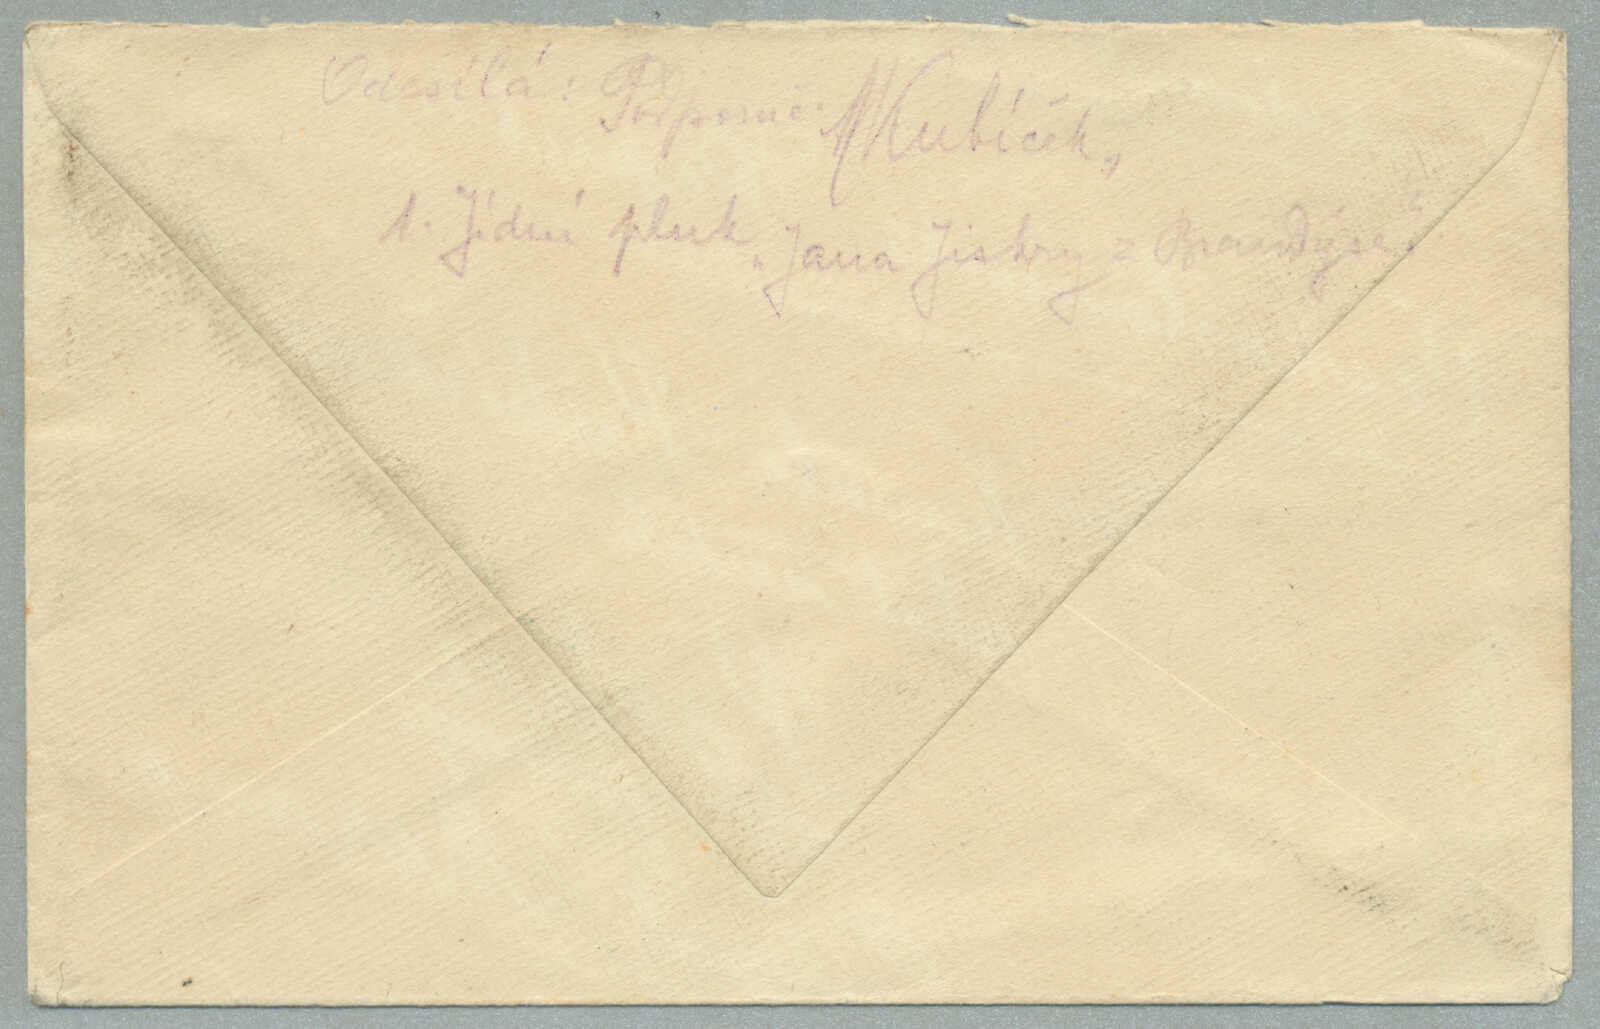 Odesílá: Podporuč. Kubíček,
1. Jízdní pluk „Jana Jiskry z Brandýsa“